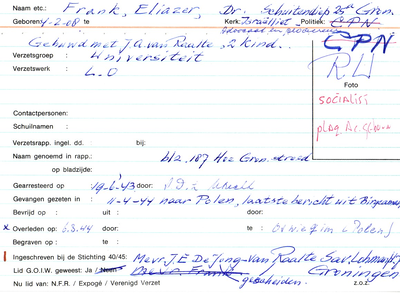 Naam etc.: Frank, Eliazer, Dr. Schuitendiep 25a Gron.
Geboren: 4-2-08 te Kerk: Israëliet Politiek: CPN
advocaat en procureur
Gehuwd met J.A. van Raalte, 2 kind. CPN
Verzetsgroep: Universiteit
Verzetswerk: L.O
Foto
SOCIALIST
Contactpersonen:
Schuilnaam:
Verzetsrapp. ingel. dd.: bij:
Naam genoemd in rapp.: blz. 187 Het Gron.
op bladzijde:
Gearresteerd op 19-6-43 door: S.D.
Gevangen gezeten in: 11-4-44 naar Polen, laatste bericht uit Birkenau
Bevrijd op: uit: door:
x Overleden op: te: door:
Begraven op: te:
Ingeschreven bij de Stichting 40/45: Mevr. J.E. De Jong-van Raalte Sav. Lohmanpl.
Lid G.O.I.W. geweest: Ja / Neen Mevr. Frank Groningen
gescheiden.
Nu lid van: N.F.R. / Expogé / Verenigd Verzet z.o.z.